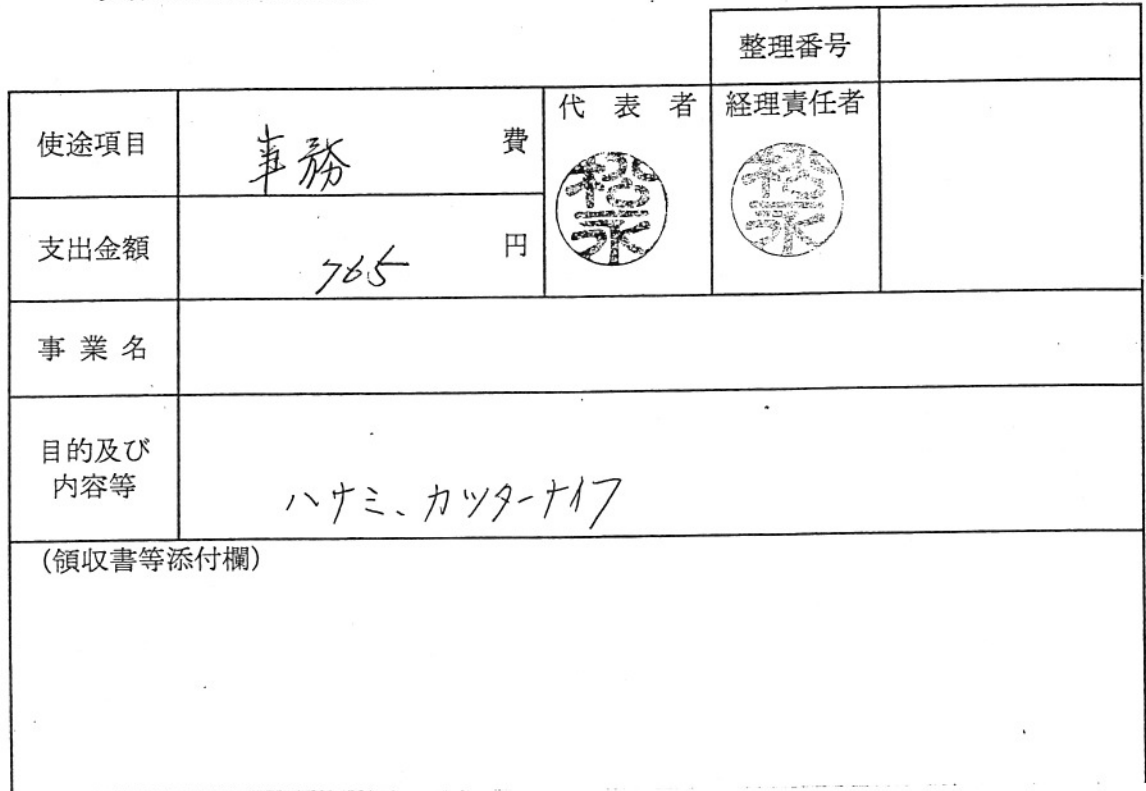 整理番号
使途項目 事務 費 代表者 経理責任者
松永 松永
支出金額 765 円
事業名
目的及び
内容等
ハサミ、カッターナイフ
(領収書等添付欄)